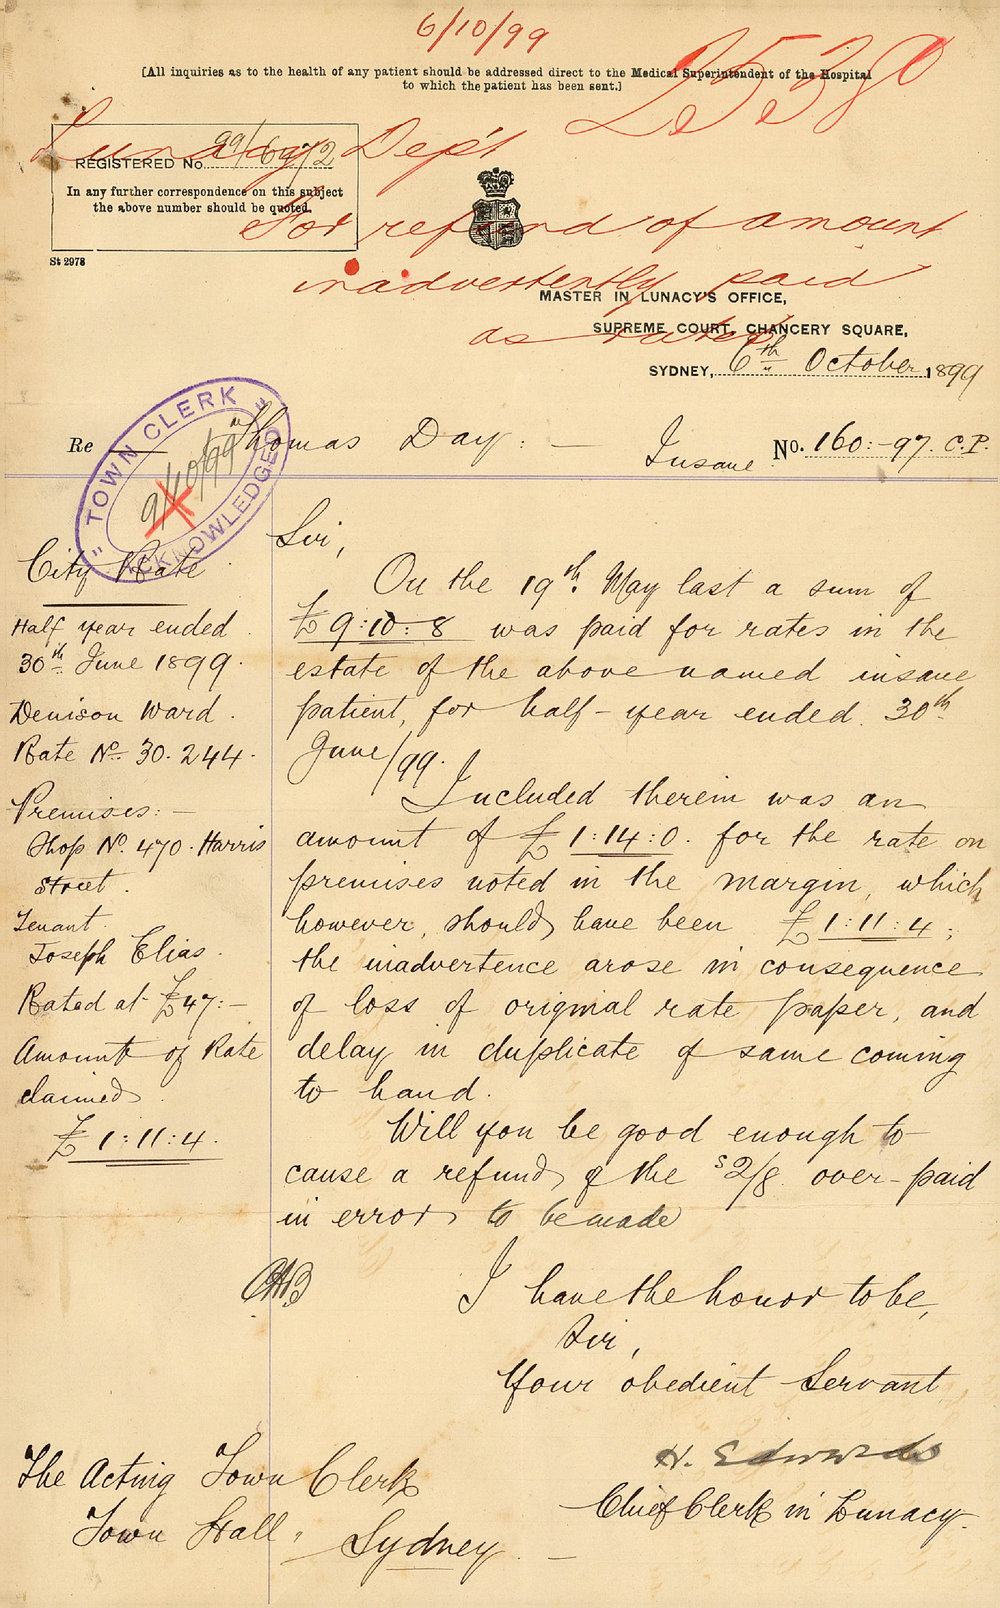 6/10/99
[All inquiries as to the health of any patient should be addressed direct to the Medical Superintendent of the Hospital
to which the patient has been sent.]
2538
Lunacy Dep't
For refund of amount
inadvertently paid
as rates
REGISTERED No. 99/6972
In any further correspondence on this subject
the above number should be quoted.
St 2978
MASTER IN LUNACY'S OFFICE,
SUPREME COURT, CHANCERY SQUARE,
SYDNEY, 6th October 1899
"TOWN CLERK"
9/10/99
ACKNOWLEDGED
Re Thomas Day :— Insane No. 160:-97. C.P.
City Rate
Half year ended
30th June 1899.
Denison Ward.
Rate No. 30.244.
Premises:—
Shop No. 470. Harris
Street.
Tenant
Joseph Elias.
Rated at £47:—
Amount of Rate
claimed
£1:11:4.
Sir,
On the 19th May last a sum of
£9:10:8 was paid for rates in the
estate of the above named insane
patient, for half-year ended 30th
June/99.
Included therein was an
amount of £1:14:0. for the rate on
premises noted in the margin, which
however, should have been £1:11:4;
the inadvertence arose in consequence
of loss of original rate paper, and
delay in duplicate of same coming
to hand.
Will you be good enough to
cause a refund of the s2/8 over-paid
in error to be made
I have the honor to be,
Sir,
Your obedient Servant
H. Edwards
Chief Clerk in Lunacy.
The Acting Town Clerk
Town Hall,
Sydney.—